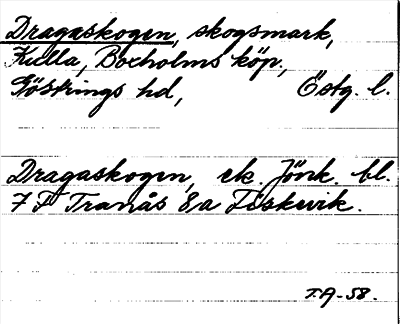 Dragaskogen, skogsmark,
Kulla, Boxholms köp.,
Göstrings hd, Östg. l.
Dragaskogen, ek. Jönk. bl.
7 F Tranås 8,a Fiskevik.
T.A-58.